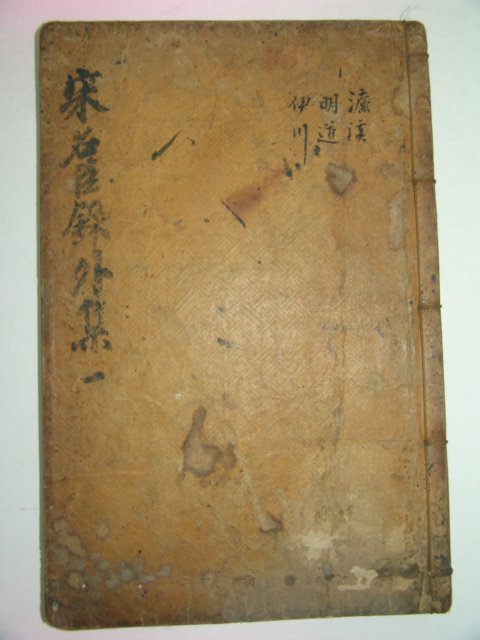 濂溪
明道
伊川
宋名臣錄外集一